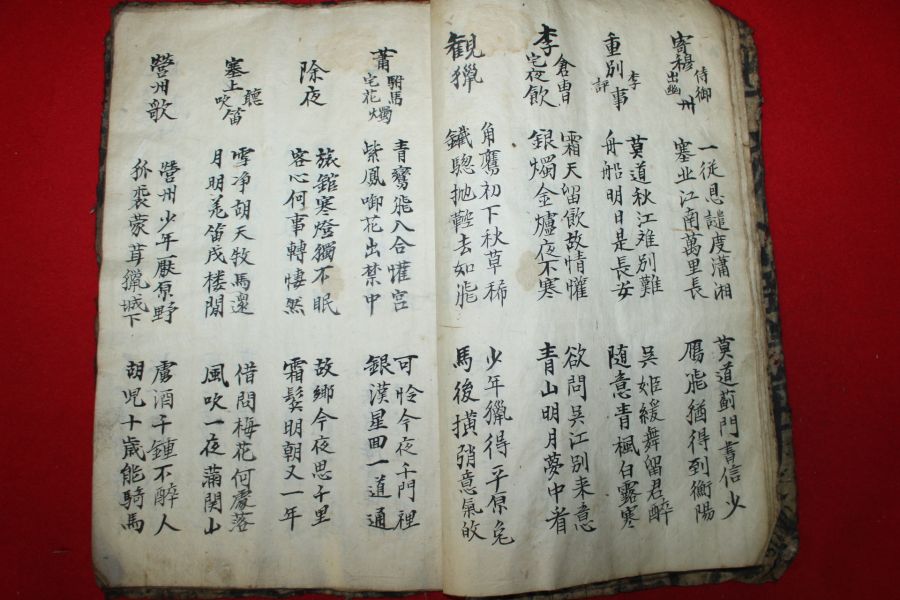 寄穆侍御出幽州
一從恩譴度瀟湘
塞北江南萬里長
莫道薊門書信少
鴈飛猶得到衡陽
重別李評事
莫道秋江难別難
舟船明日是長安
吳姬緩舞留君醉
隨意青楓白露寒
李倉曹宅夜飲
霜天留飲故情懽
銀燭金爐夜不寒
欲問吳江別来意
青山明月夢中看
觀獵
角鷹初下秋草稀
鐵驄抛鞚去如飛
少年獵得平原兔
馬後横捎意氣皈
蕭駙馬宅花燭
青鸞飛入合懽宫
紫鳳啣花出禁中
可怜今夜千門裡
銀漢星回一道通
除夜
旅舘寒燈獨不眠
客心何事轉悽然
故鄉今夜思千里
霜鬂明朝又一年
塞上聽吹笛
雪净胡天牧馬還
月明羌笛戍楼間
借問梅花何處落
風吹一夜滿関山
營州歌
營州少年厭原野
狐裘蒙茸獵城下
虜酒千鍾不醉人
胡児十歳能騎馬